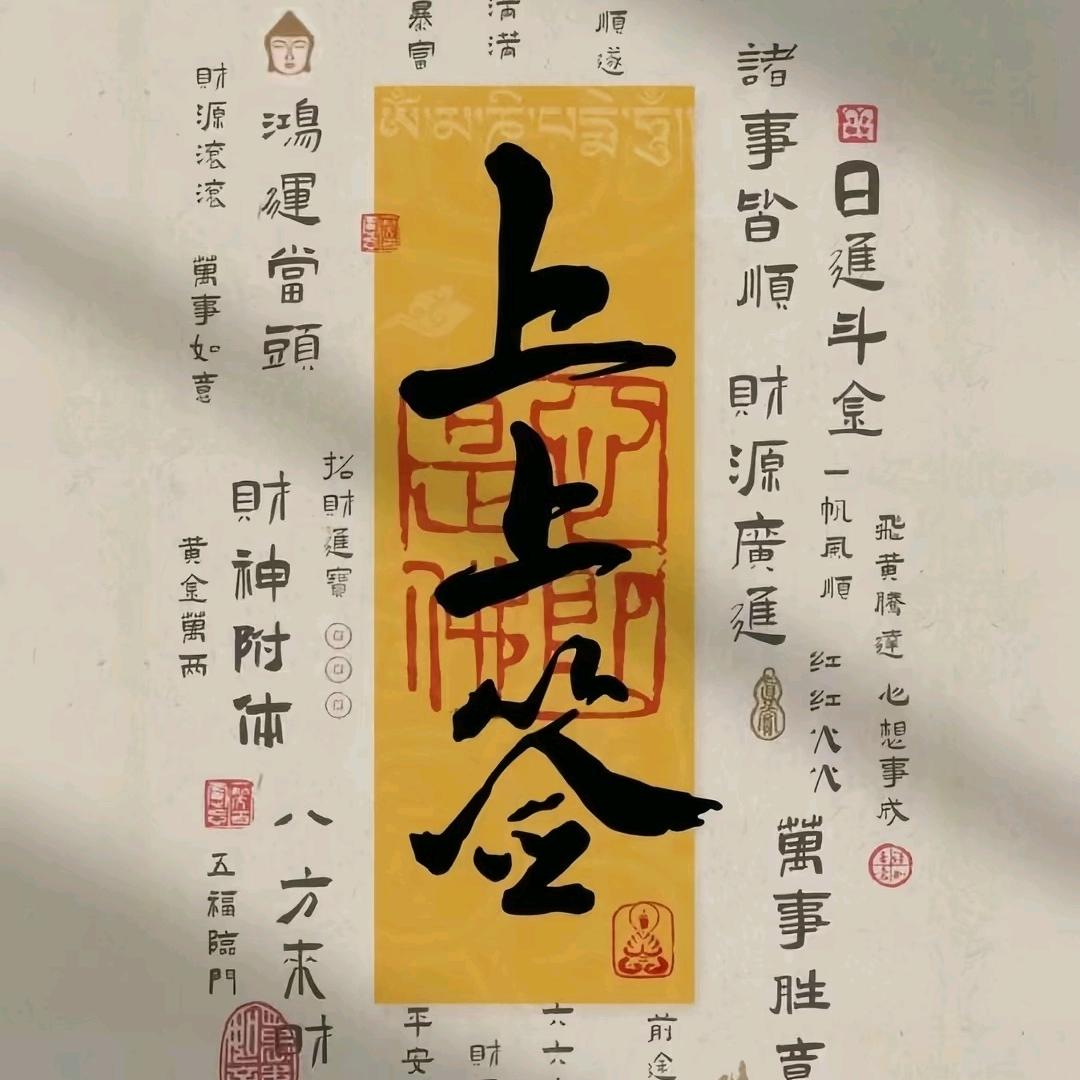 飛黄騰達
心想事成
日進斗金
一帆風順
红红火火
諸事皆順
財源廣進
萬事胜意
順遂
满满
暴富
ཨོཾ་མ་ཎི་པདྨེ་ཧཱུྃ
上上签
心即是佛
招財進寶
鴻運當頭
財神附体
八方来財
財源滚滚
萬事如意
黄金萬两
五福臨門
前途
六六
財
平安